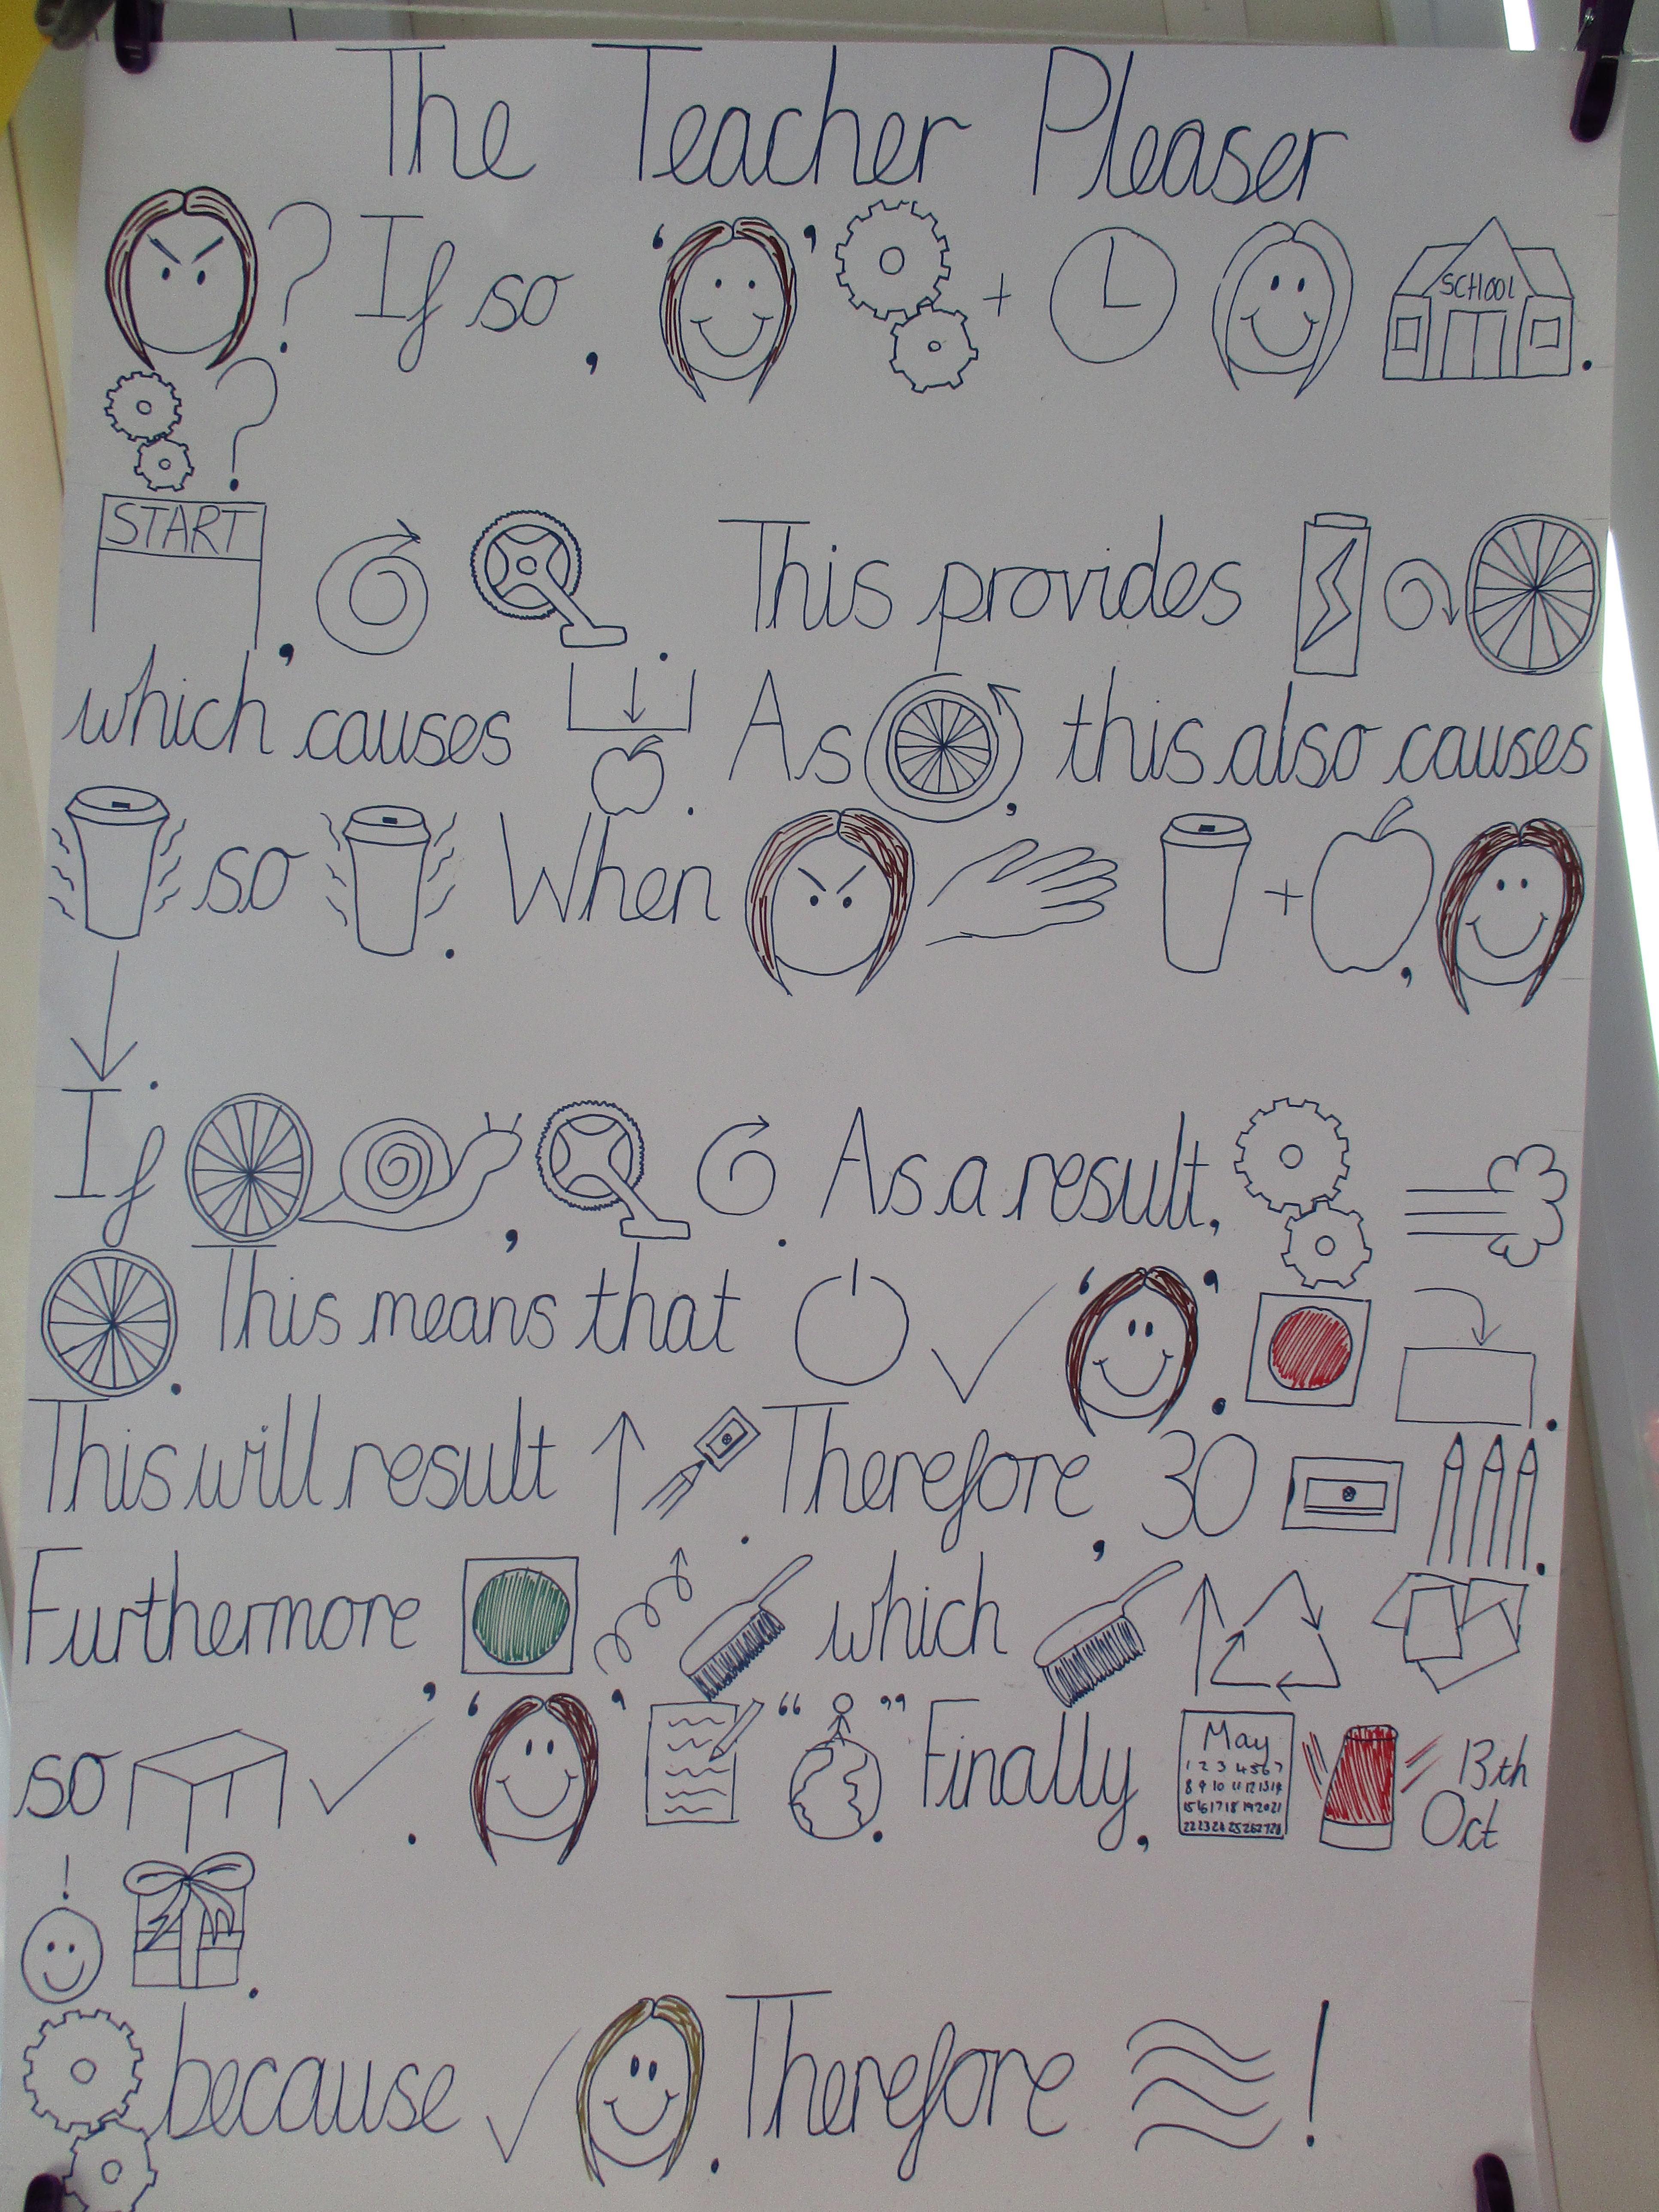 The Teacher Pleaser
? If so, ' ' + SCHOOL.
?
START, . This provides
which causes . As , this also causes
so . When + ,
.
If , . As a result,
. This means that ' '. .
This will result . Therefore, 30 .
Furthermore, which
so . ' ' " ". Finally, May 13th Oct
1 2 3 4 5 6 7
8 9 10 11 12 13 14
15 16 17 18 19 20 21
22 23 24 25 26 27 28
! N B .
because . Therefore !